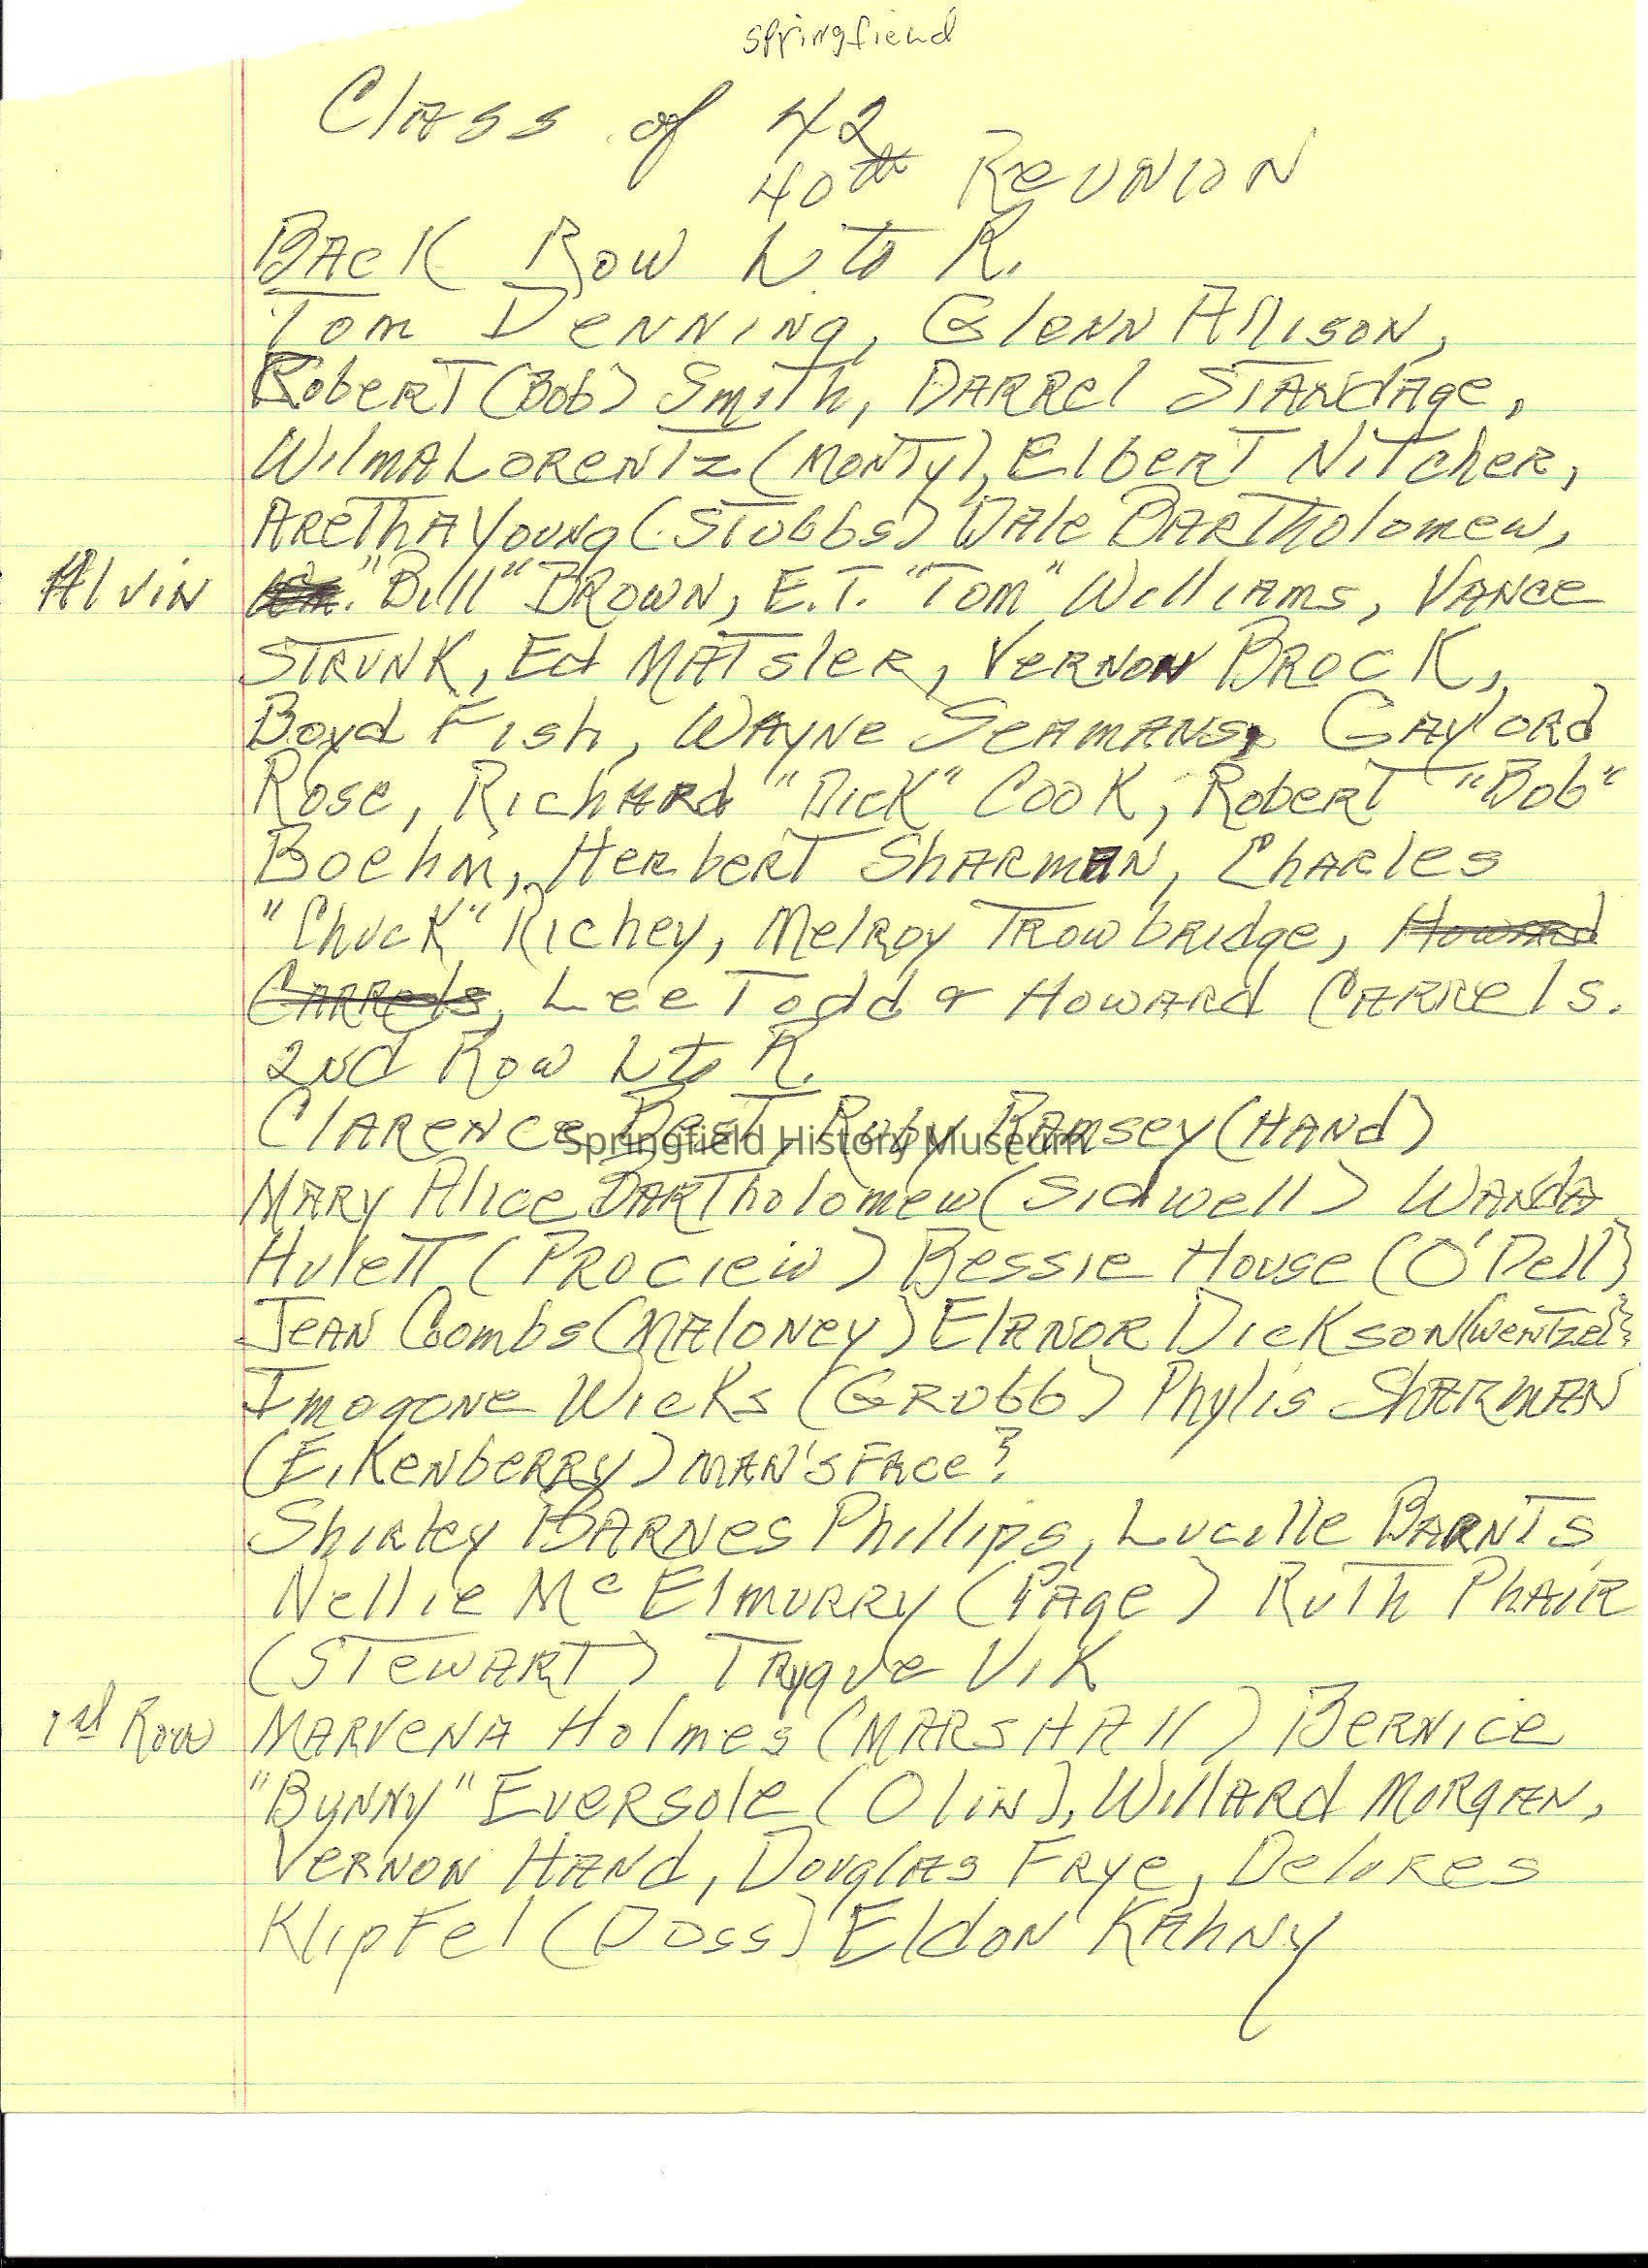 Springfiend
Class of 42
40th Reunion
Back Row L to R.
Tom Denning, Glenn Allison,
Robert (Bob) Smith, Darrel Standage,
Wilma Lorentz (Monty), Elbert Nitcher,
Aretha Young (Stubbs) Dale Bartholomew,
Alvin "Bill" Brown, E.T. "Tom" Williams, Vance
Strunk, Ed Matsler, Vernon Brock,
Boyd Fish, Wayne Seamans, Gaylord
Rose, Richard "Dick" Cook, Robert "Bob"
Boehm, Herbert Sharman, Charles
"Chuck" Richey, Melroy Trowbridge, Howard
Carrels, Lee Todd & Howard Carrels.
2nd Row L to R.
Clarence Best, Ruby Ramsey (Hand)
Springfield History Museum
Mary Alice Bartholomew (Sidwell) Wanda
Hulett (Prociew) Bessie House (O'Dell)
Jean Combs (Maloney) Elanor Dickson (Wentzel)
Imogone Wicks (Grubb) Phylis Sharman
(Eikenberry) Man's Face?
Shirley Barnes Phillips, Lucille Barnts
Nellie McElmurry (Page) Ruth Phair
(Stewart) Trygve Vik
1st Row Marvena Holmes (Marshall) Bernice
"Bynny" Eversole (Olin), Willard Morgan,
Vernon Hand, Douglas Frye, Delores
Klipfel (Doss) Eldon Kahny